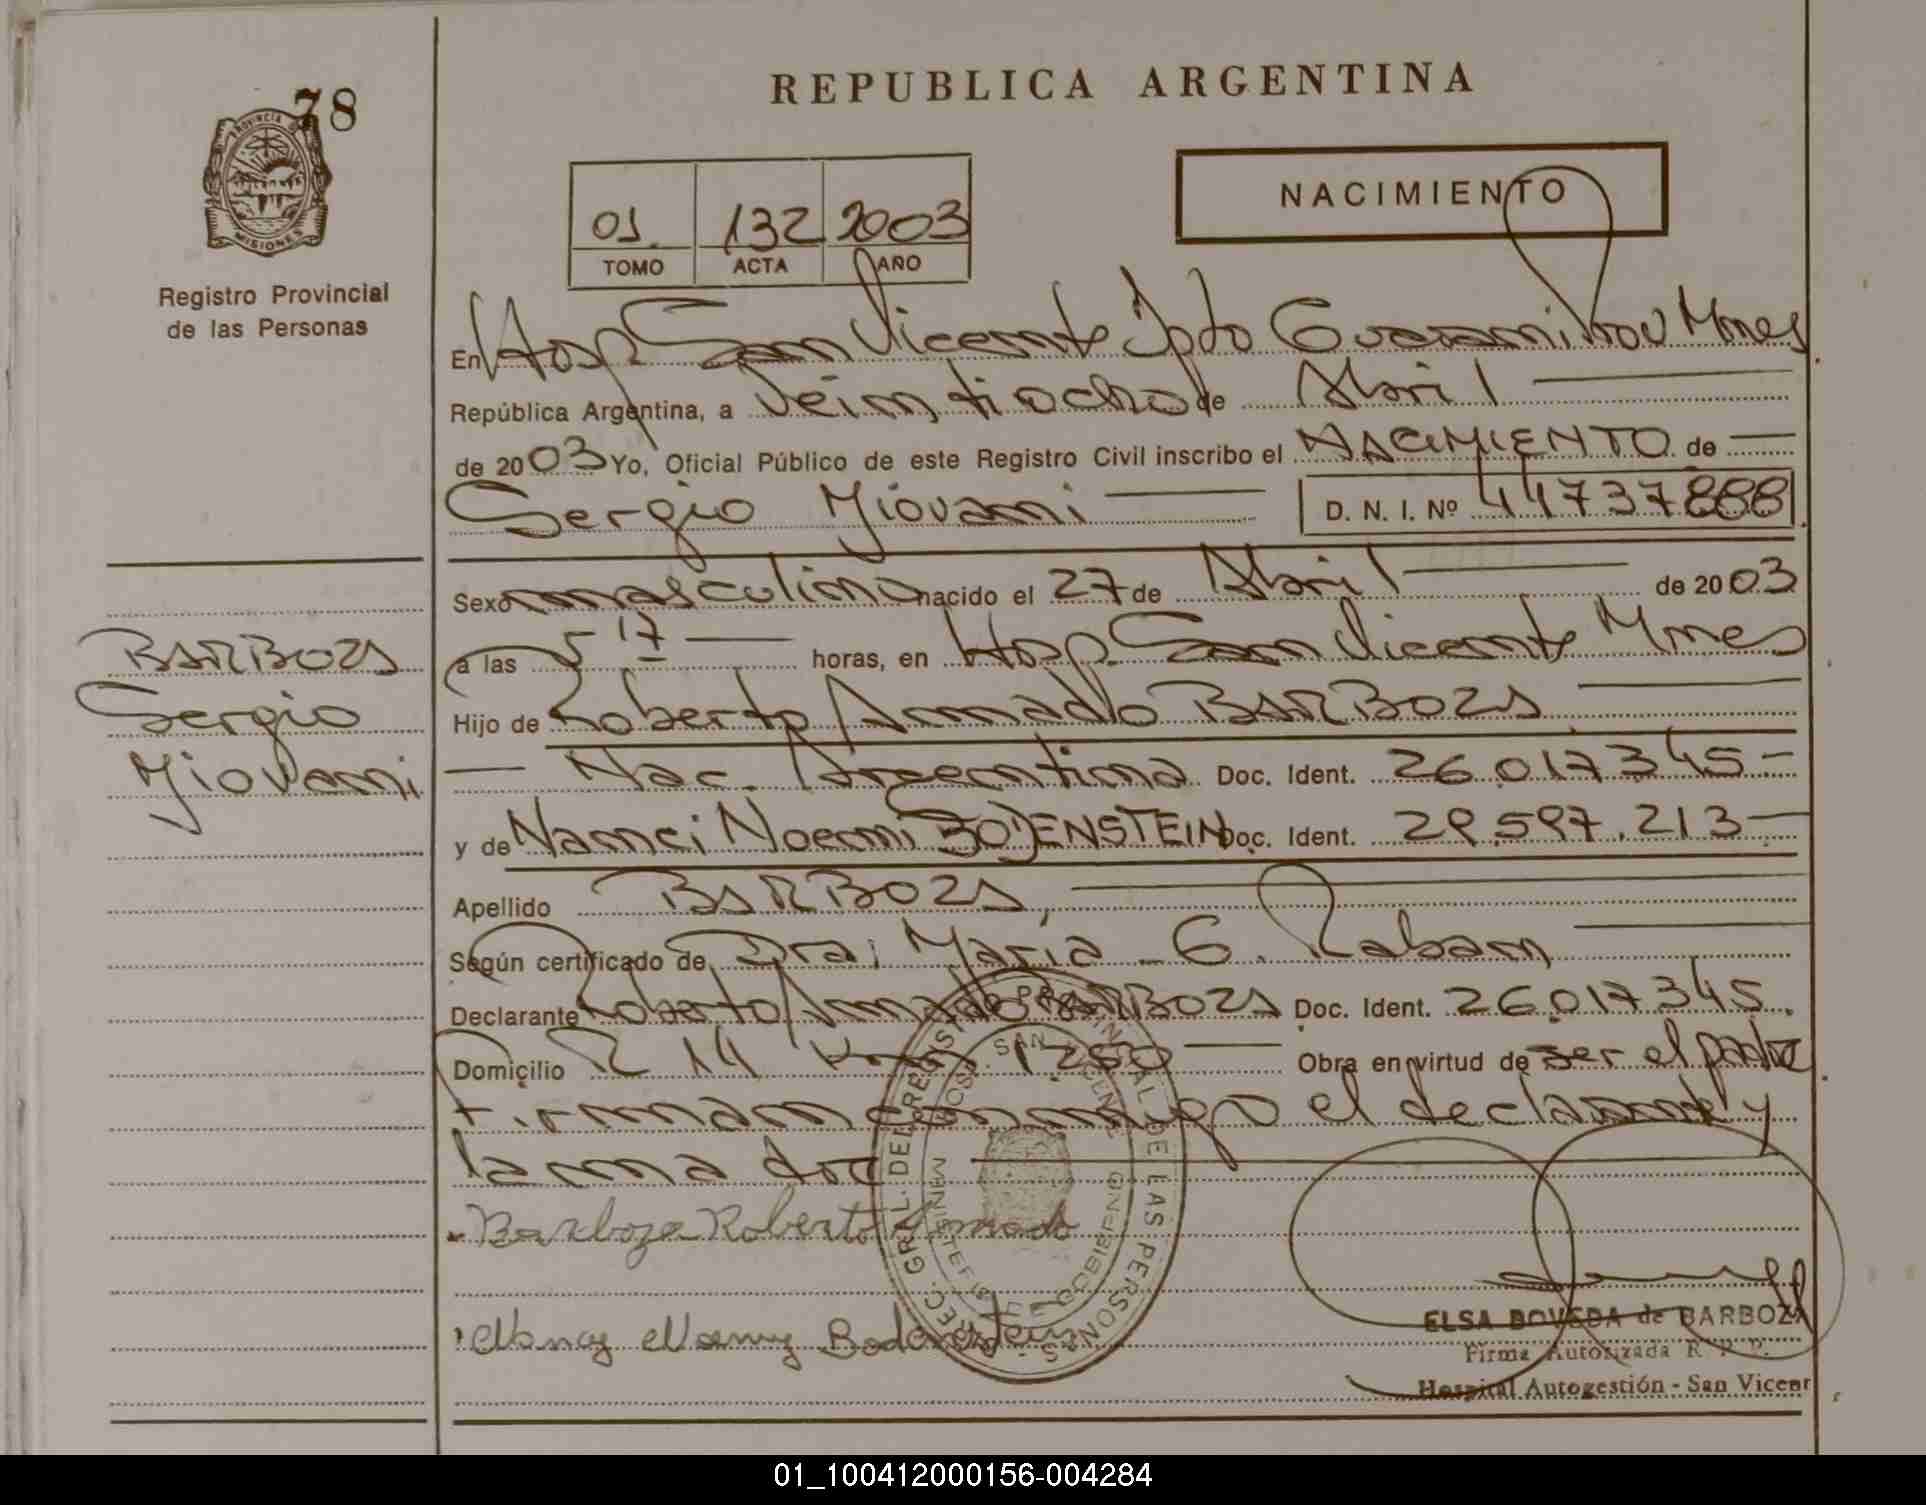 78
PROVINCIA DE
MISIONES
Registro Provincial
de las Personas
BARBOZA
Sergio
Yiovani
REPUBLICA ARGENTINA
01. 132 2003
TOMO ACTA AÑO
NACIMIENTO
En Hosp. San Vicente Dpto Guarani Prov Mnes
República Argentina, a Veintiocho de Abril
de 2003 Yo, Oficial Público de este Registro Civil inscribo el NACIMIENTO de
Sergio Yiovani D. N. I. Nº 44737888
Sexo masculino nacido el 27 de Abril de 2003
a las 5 17 horas, en Hosp. San Vicente Mnes
Hijo de Roberto Amado BARBOZA
Nac. Argentina Doc. Ident. 26.017.345
y de Nanci Noemi BODENSTEIN Doc. Ident. 29.597.213
Apellido BARBOZA
Según certificado de Dra. Maria G. Raban
Declarante Roberto Amado BARBOZA Doc. Ident. 26.017.345
Domicilio R 14 Km 1250 Obra en virtud de ser el padre
Firman conmigo el declarante y
la madre
Barboza Roberto Amado
Nancy Noemy Bodenstein
DIREC. GRAL. DEL REGISTRO PROVINCIAL DE LAS PERSONAS
HOSP. SAN VICENTE
MINISTERIO DE GOBIERNO
ELSA BOVEDA de BARBOZA
Firma Autorizada R. P. P.
Hospital Autogestión - San Vicent
01_100412000156-004284